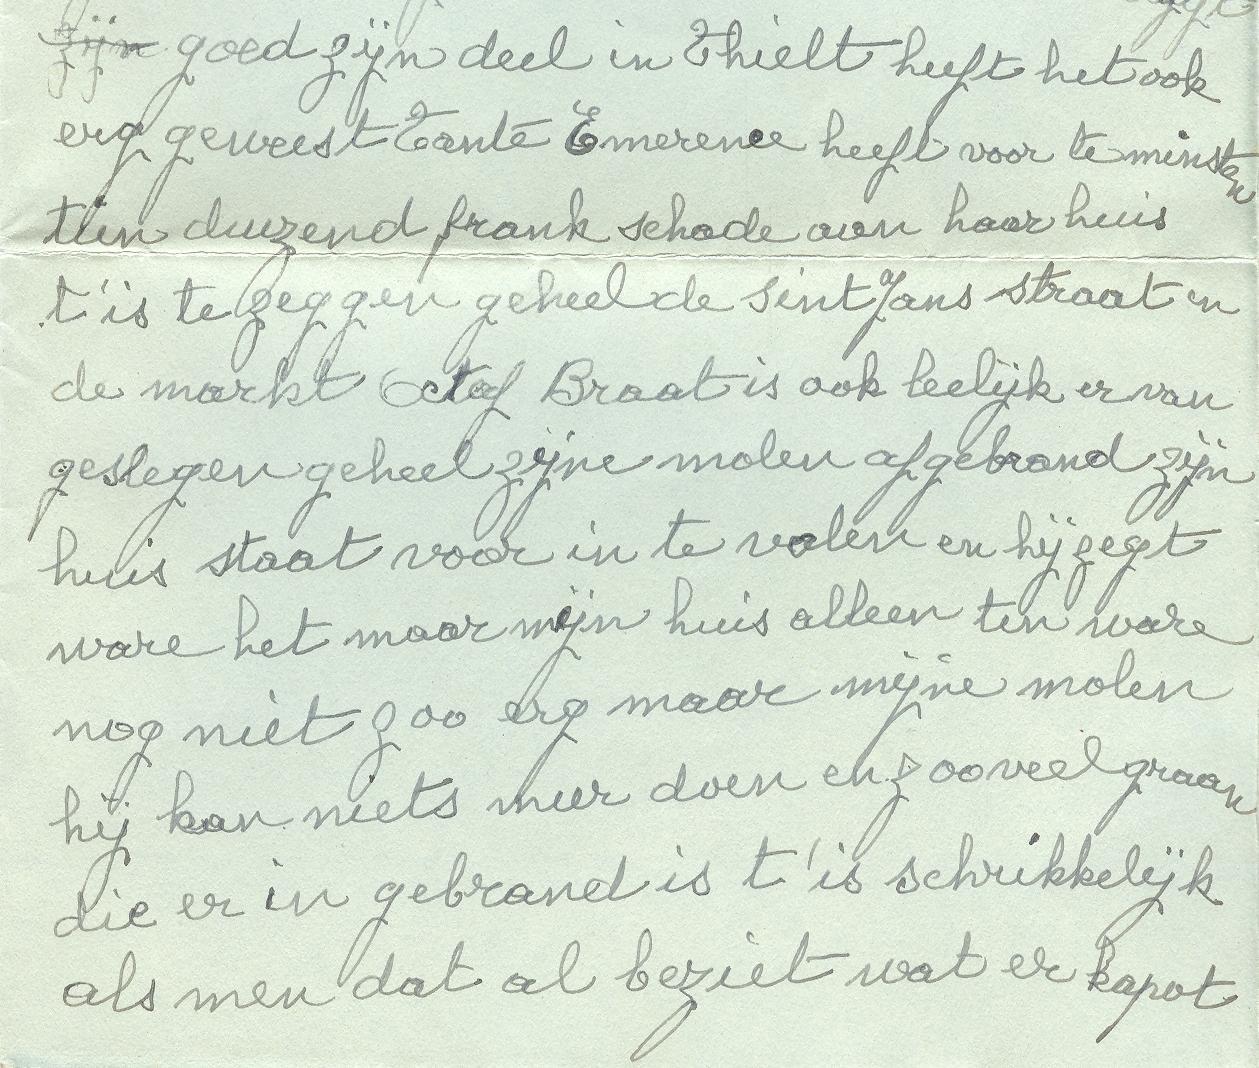 zijn goed zijn deel in Thielt heeft het ook
erg geweest Tante Emerence heeft voor te minsten
tien duizend frank schade aan haar huis
t'is te zeggen geheel de Sint Jans straat en
de markt Octaf Braat is ook leelijk er van
geslegen geheel zijne molen afgebrand zijn
huis staat voor in te valen en hij zegt
ware het maar mijn huis alleen ten ware
nog niet zoo erg maar mijne molen
hij kan niets meer doen en zooveel graan
die er in gebrand is t'is schrikkelijk
als men dat al beziet wat er kapot